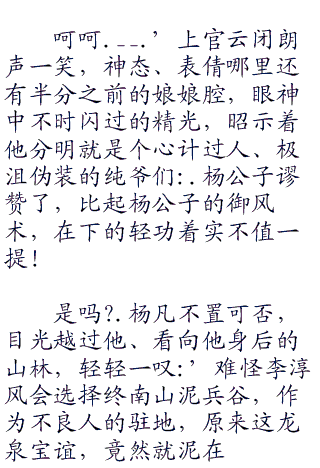 呵呵.---.’上官云闭朗
声一笑，神态、表倩哪里还
有半分之前的娘娘腔，眼神
中不时闪过的精光，昭示着
他分明就是个心计过人、极
沮伪装的纯爷们:.杨公子谬
赞了，比起杨公子的御风
术，在下的轻功着实不值一
提！
是吗?.杨凡不置可否，
目光越过他、看向他身后的
山林，轻轻一叹:’难怪李淳
风会选择终南山泥兵谷，作
为不良人的驻地，原来这龙
泉宝谊，竟然就泥在